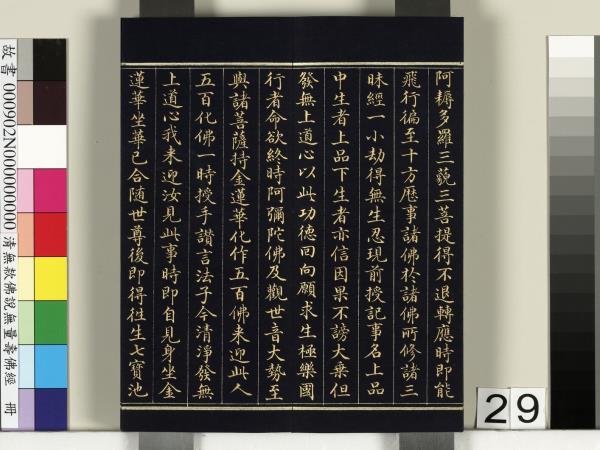 阿耨多羅三藐三菩提得不退轉應時即能
飛行徧至十方歷事諸佛於諸佛所修諸三
昧經一小劫得無生忍現前授記事名上品
中生者上品下生者亦信因果不謗大乘但
發無上道心以此功德回向願求生極樂國
行者命欲終時阿彌陀佛及觀世音大勢至
與諸菩薩持金蓮華化作五百佛來迎此人
五百化佛一時授手讚言法子今清淨發無
上道心我來迎汝見此事時即自見身坐金
蓮華坐華已合隨世尊後即得往生七寶池
故書 000902N000000000 清無款佛說無量壽佛經 冊
29